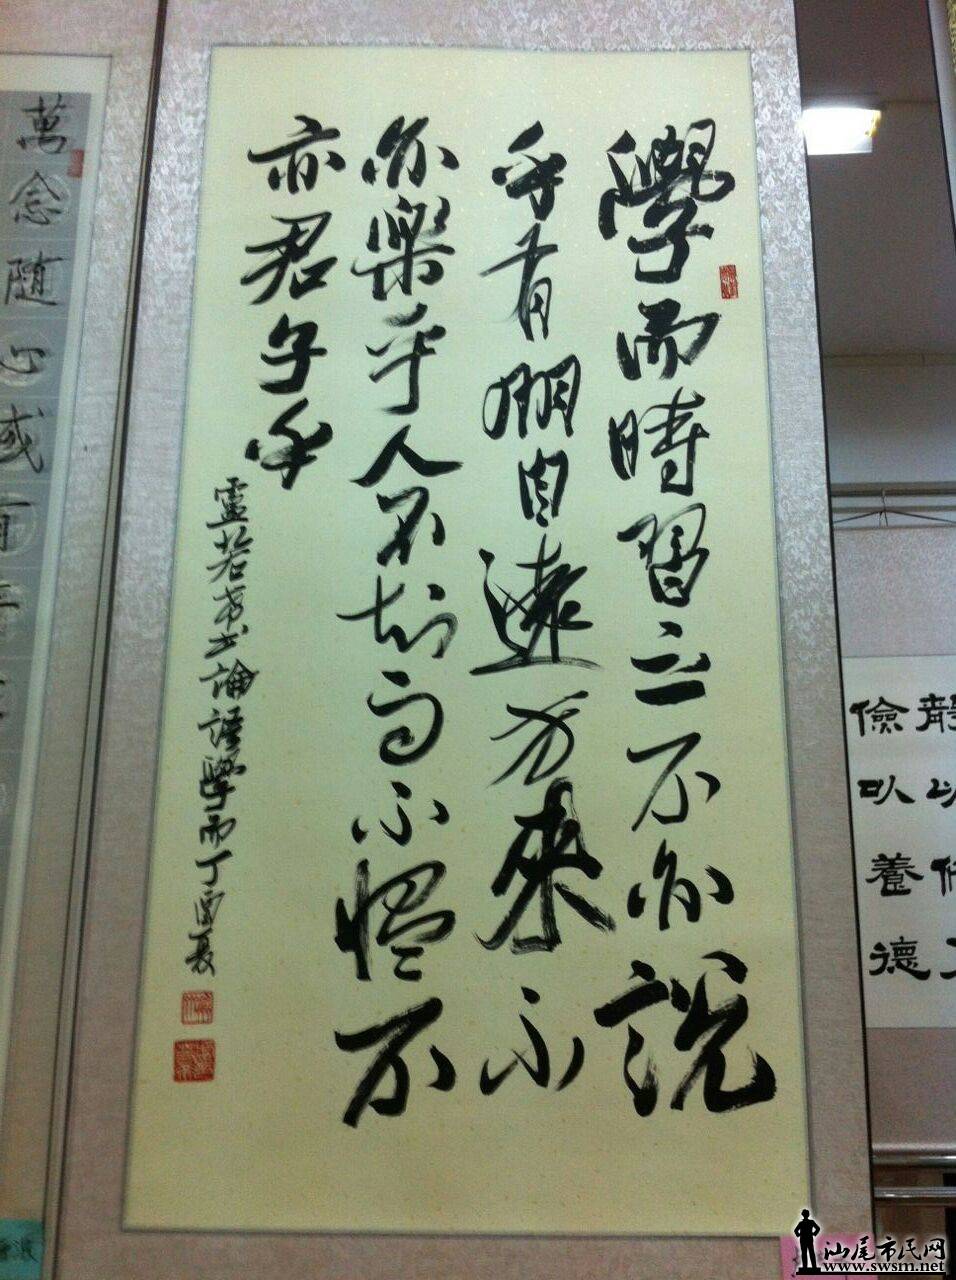 學而時習之不亦說
乎有朋自遠方來不
亦樂乎人不知而不愠不
亦君子乎
論語學而丁酉夏
萬念隨心
儉以養德
汕尾市民网
www.swsm.net